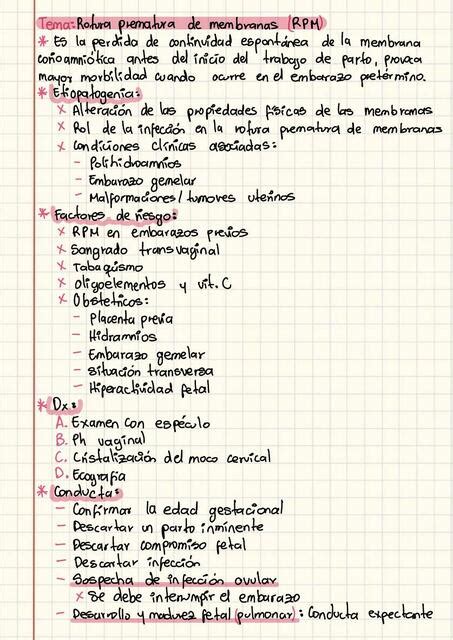 Tema: Rotura prematura de membranas (RPM)
* Es la perdida de continuidad espontánea de la membrana
corioamniótica antes del inicio del trabajo de parto, provoca
mayor morbilidad cuando ocurre en el embarazo petérmino.
* Etiopatogenia:
x Alteración de las propiedades físicas de las membranas
x Rol de la infección en la rotura prematura de membranas
x Condiciones clínicas asociadas:
- Polihidroamnios
- Embarazo gemelar
- Malformaciones/tumores uterinos
* Factores de riesgo:
x RPM en embarazos previos
x Sangrado transvaginal
x Tabaquismo
x Oligoelementos y vit. C
x Obstetricos:
- Placenta previa
- Hidramnios
- Embarazo gemelar
- Situación transversa
- Hiperactividad fetal
* Dx:
A. Examen con espéculo
B. Ph vaginal
C. Cristalización del moco cervical
D. Ecografía
* Conducta:
- Confirmar la edad gestacional
- Descartar un parto inminente
- Descartar compromiso fetal
- Descartar infección
- Sospecha de infección ovular
x Se debe interrumpir el embarazo
- Desarrollo y madurez fetal (pulmonar): Conducta expectante